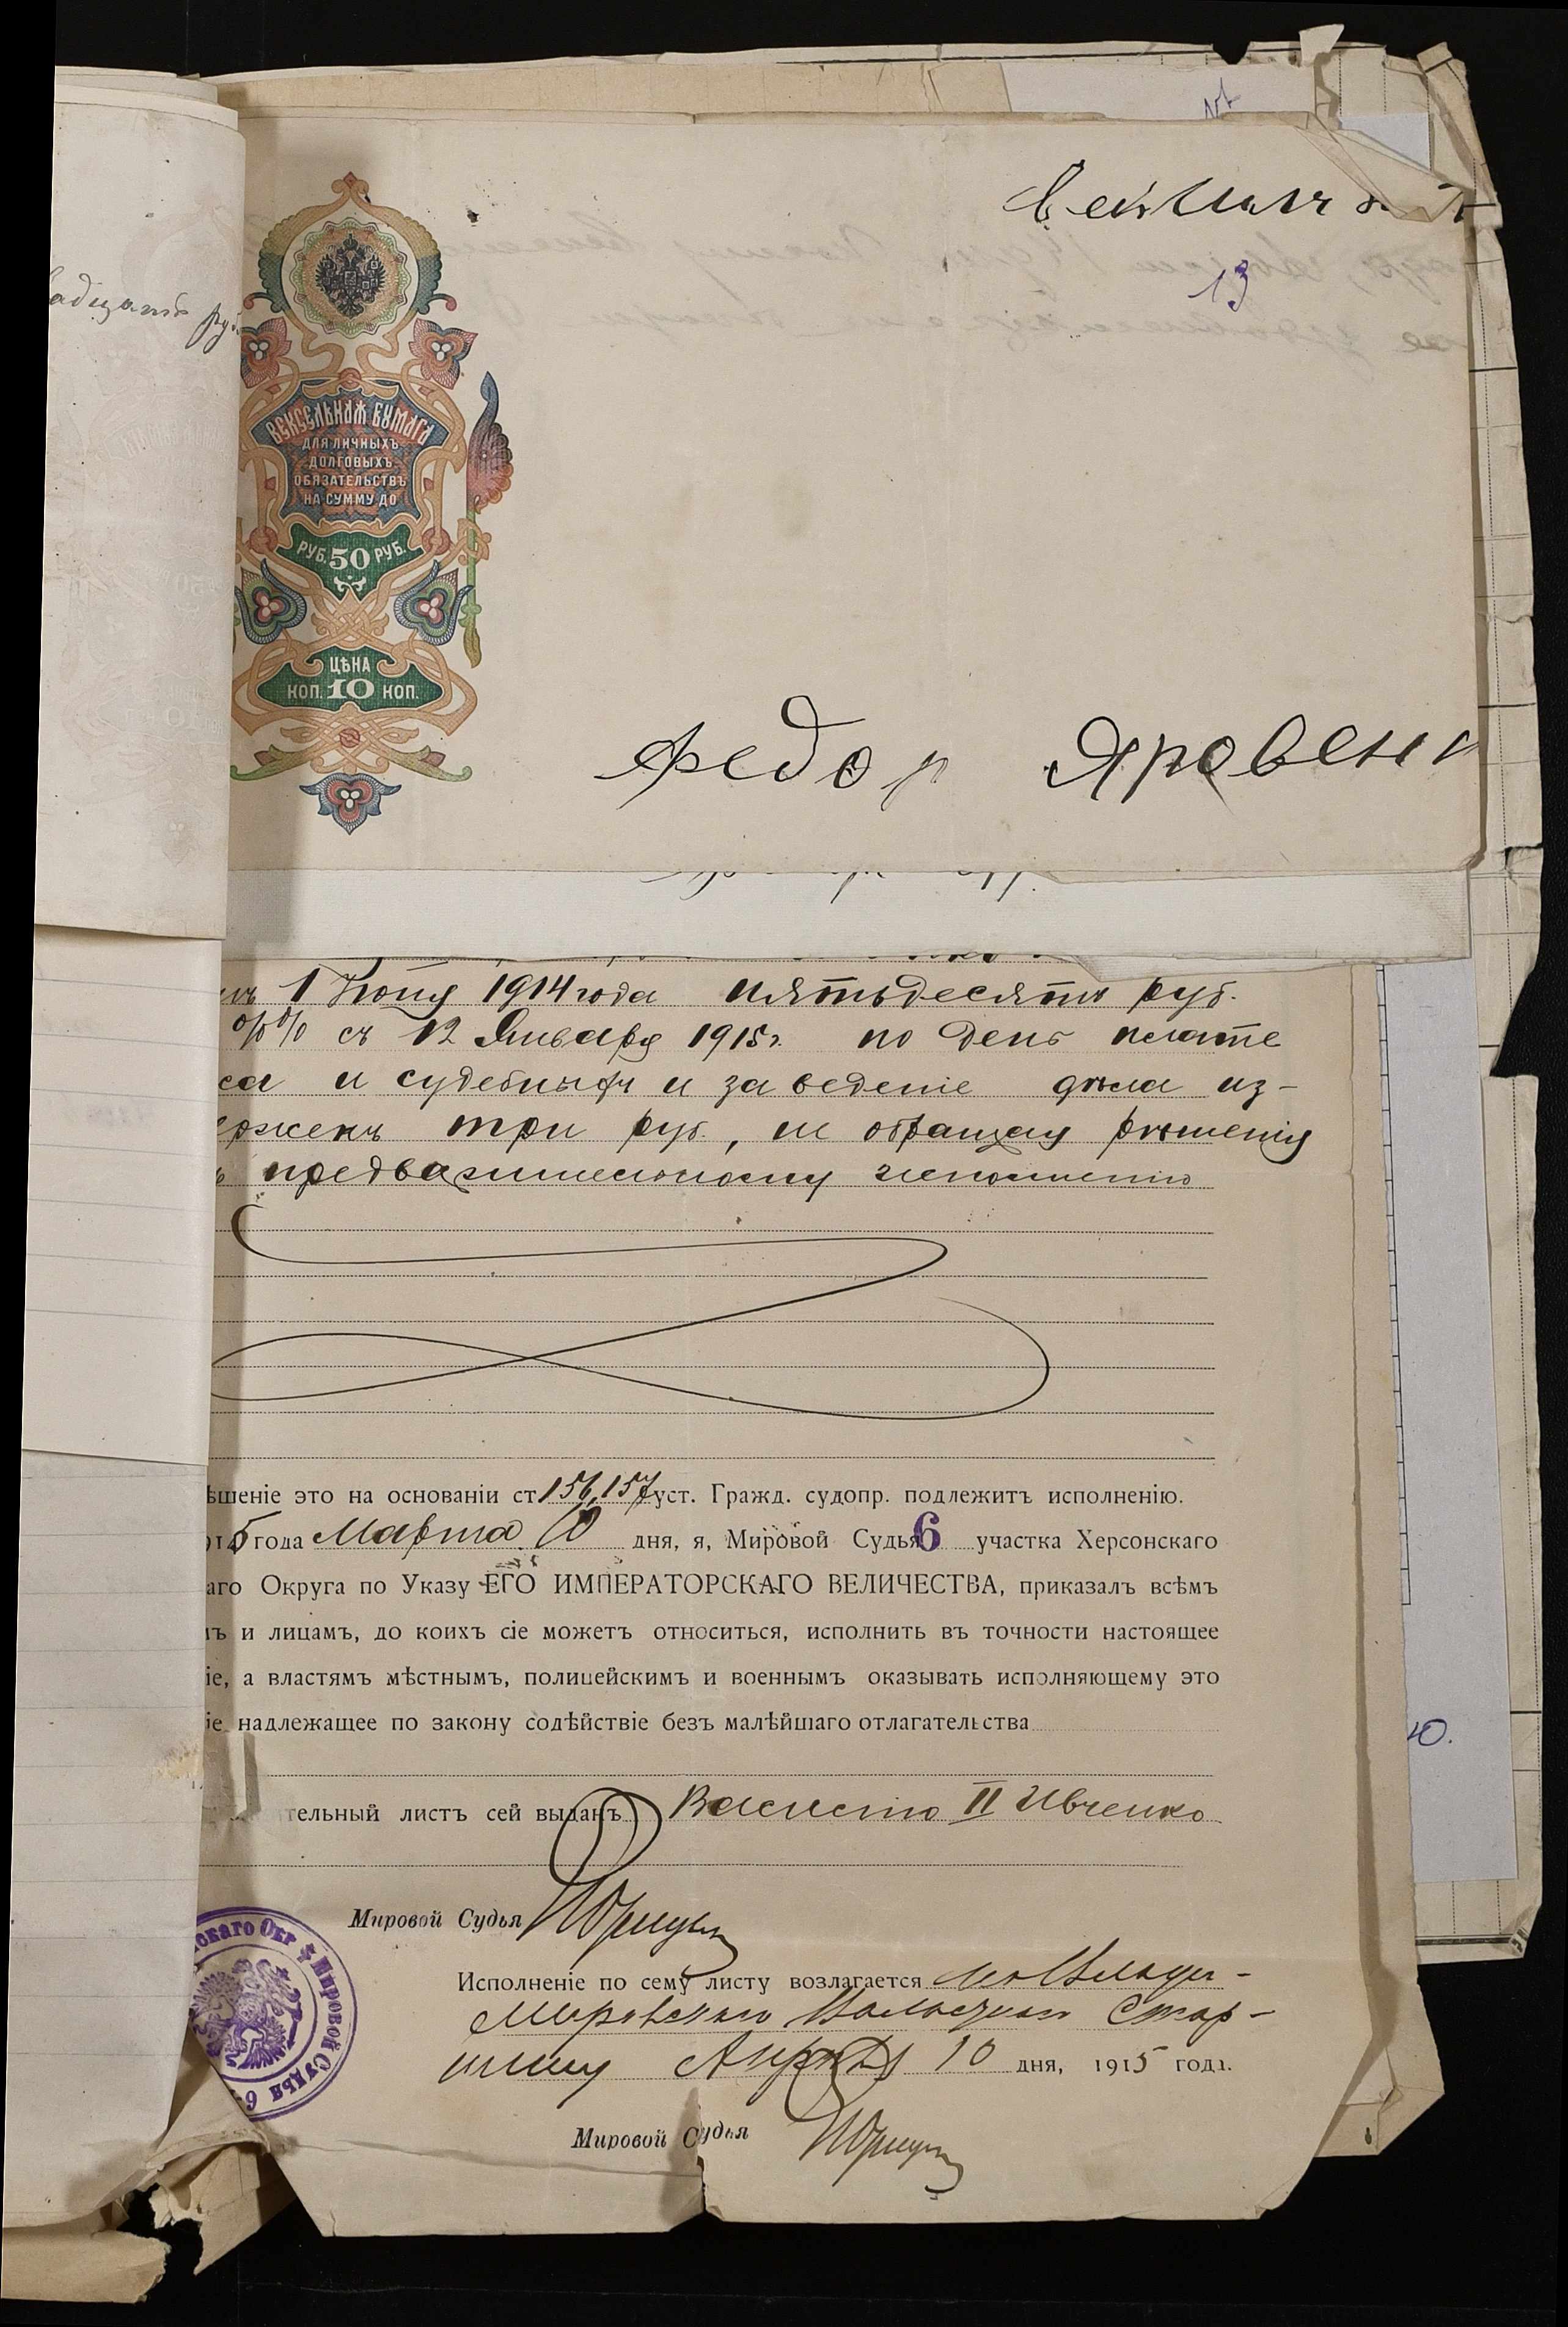 руб
13
ВЕКСЕЛЬНАЯ БУМАГА
ДЛЯ ЛИЧНЫХЪ
ДОЛГОВЫХЪ
ОБЯЗАТЕЛЬСТВЪ
НА СУММУ ДО
РУБ. 50 РУБ.
ЦѢНА
КОП. 10 КОП.
Федор Яровенк
1 Іюня 1914 года пятьдесятъ руб.
%% съ 12 Января 1915 г. по день плате
са и судебныхъ и за веденіе дѣла из-
ержекъ три руб., не обращая рѣшенія
предварительному исполненію
ѣшеніе это на основаніи ст 156, 157 уст. Гражд. судопр. подлежитъ исполненію.
915 года Марта 10 дня, я, Мировой Судья 6 участка Херсонскаго
аго Округа по Указу ЕГО ИМПЕРАТОРСКАГО ВЕЛИЧЕСТВА, приказалъ всѣмъ
ъ и лицамъ, до коихъ сіе можетъ относиться, исполнить въ точности настоящее
іе, а властямъ мѣстнымъ, полицейскимъ и военнымъ оказывать исполняющему это
іе надлежащее по закону содѣйствіе безъ малѣйшаго отлагательства
тельный листъ сей выданъ Василію II Ивченко
Мировой Судья
скаго Окр Мировой Судья 6
Исполненіе по сему листу возлагается на Влади-
мировскаго Волостнаго Стар-
шину Апрѣля 10 дня, 1915 года.
Мировой Судья
ю.